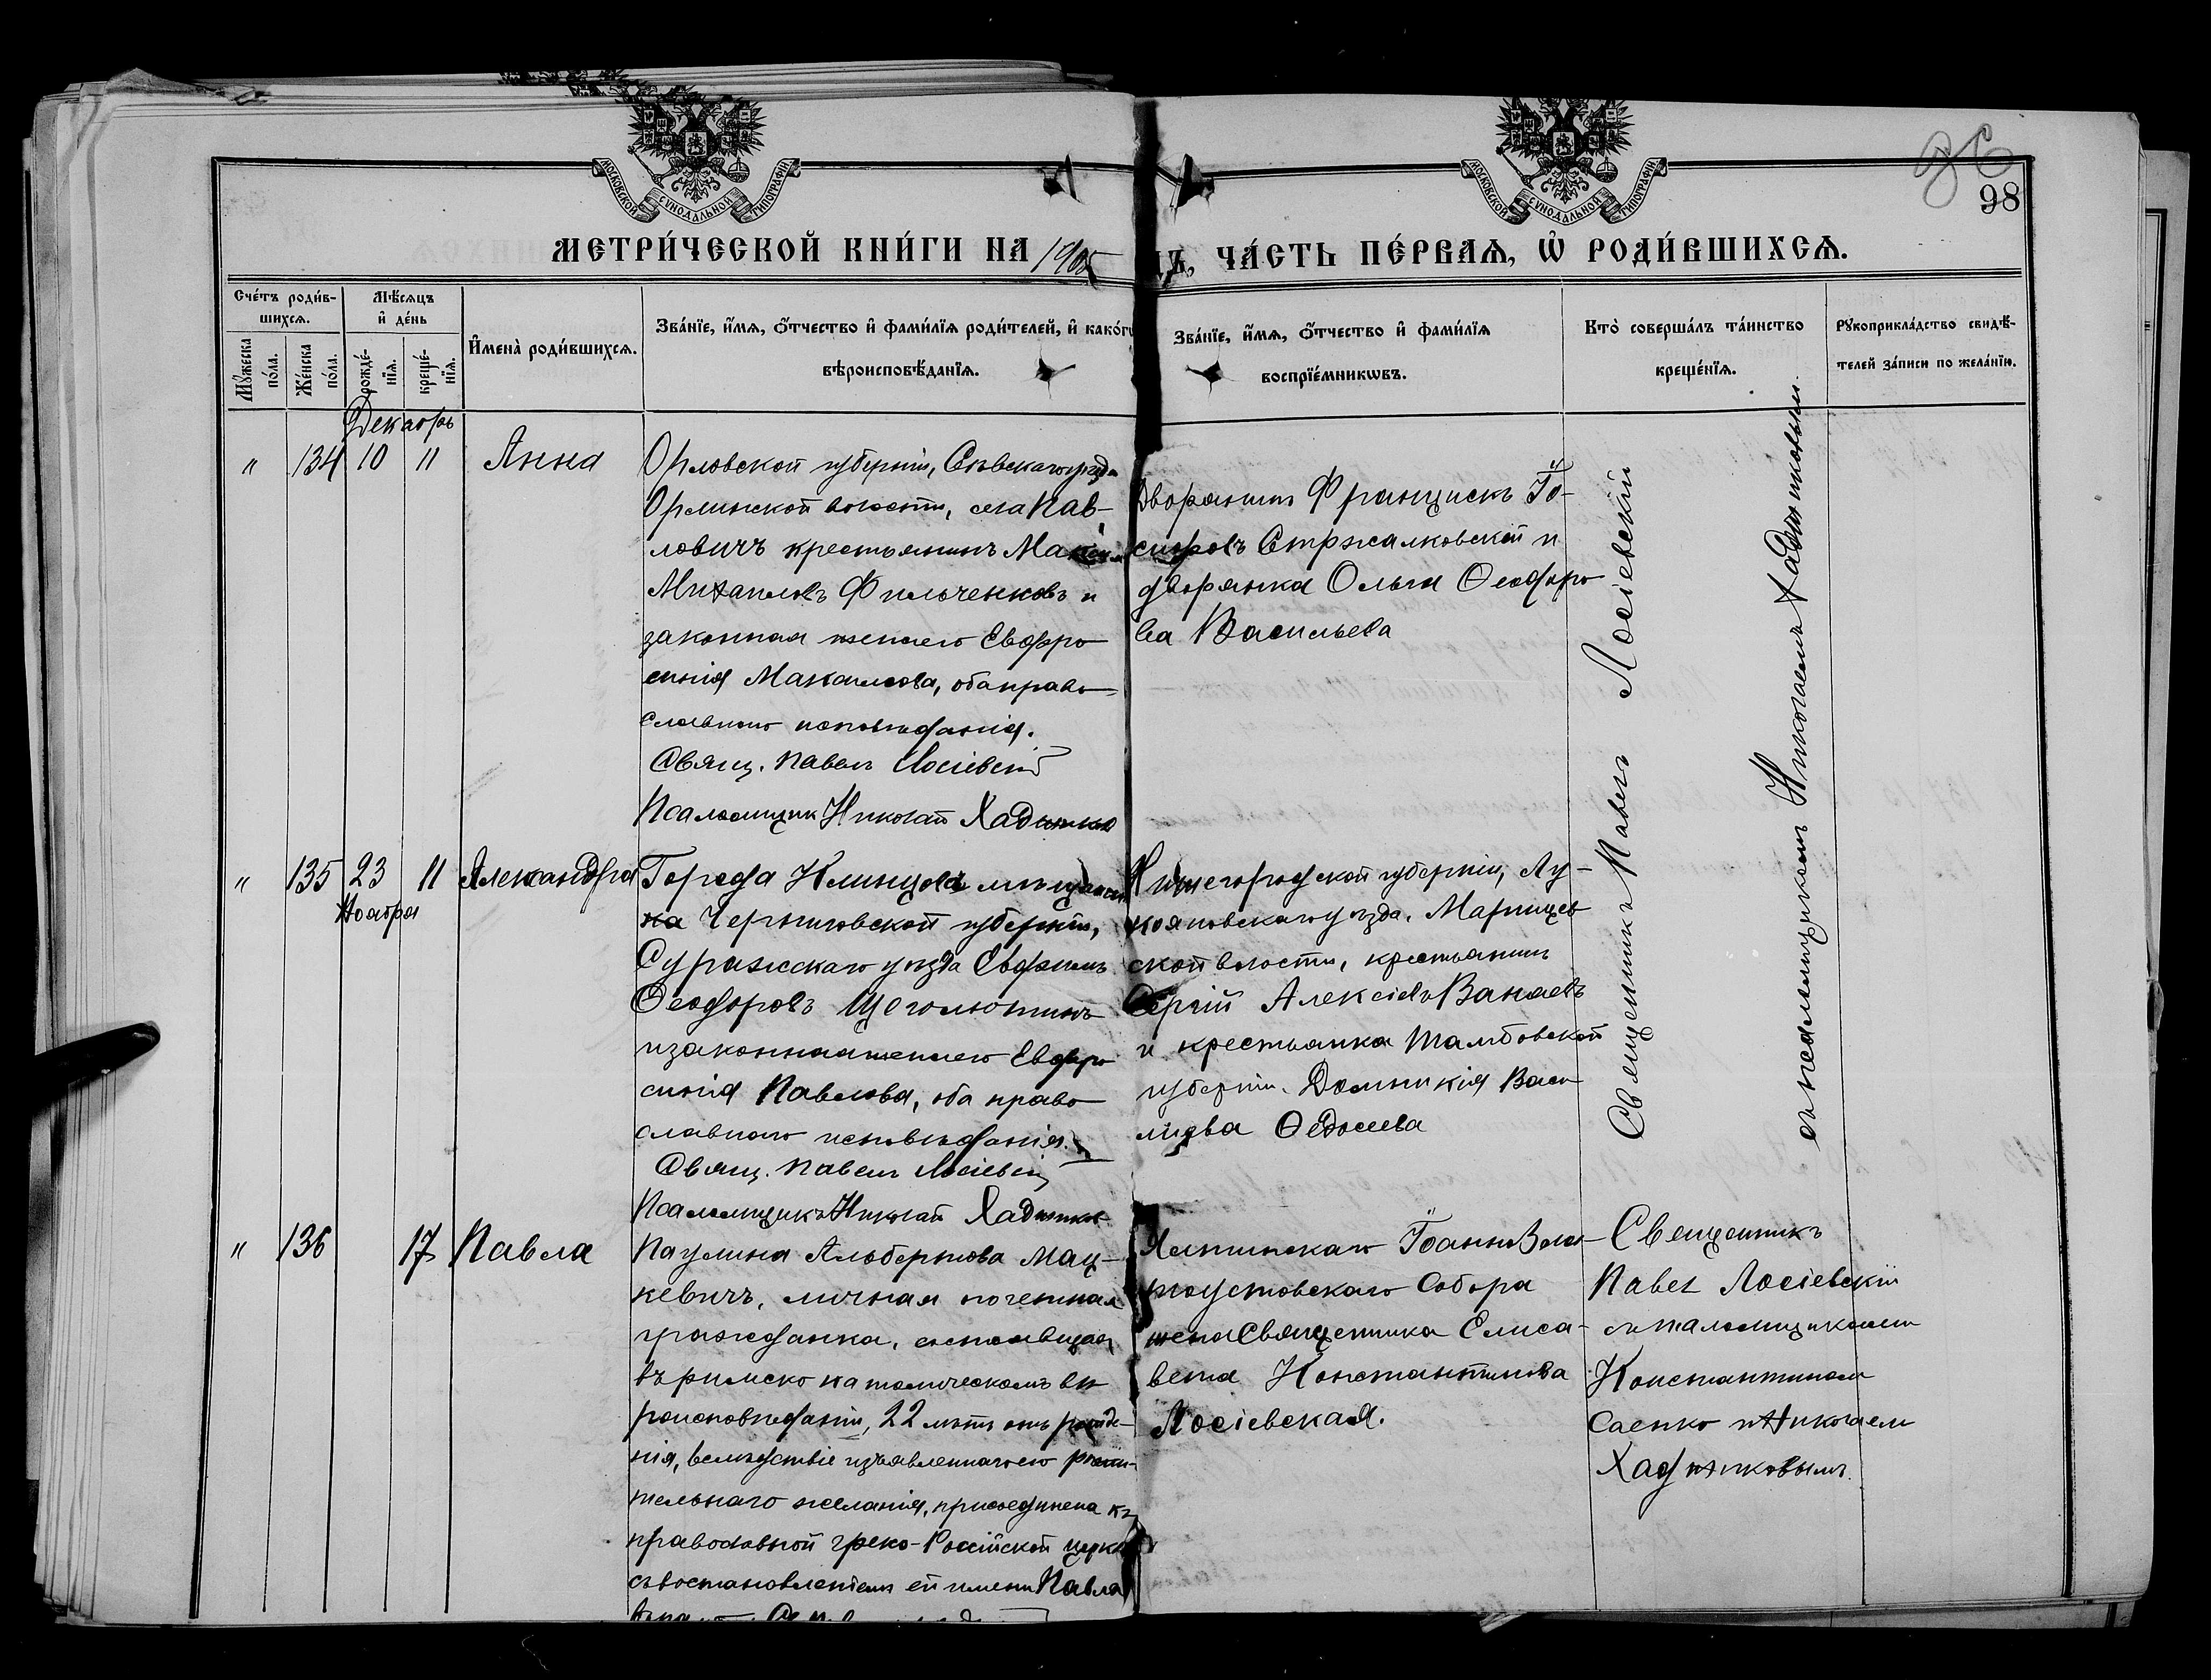 МОСКОВСКОЙ СѴНОДАЛЬНОЙ ТИПОГРАФІИ
МОСКОВСКОЙ СѴНОДАЛЬНОЙ ТИПОГРАФІИ
98
МЕТРИ́ЧЕСКОЙ КНИ́ГИ НА 1905
ДЪ, ЧА́СТЬ ПЕ́РВАѦ, Ѡ҆ РОДИ́ВШИХСѦ.
Сче́тъ роди́в-
шихсѧ.
Мꙋ́жеска по́ла.
Же́нска по́ла.
Мѣ́сѧцъ
и҆ де́нь
рожде́-
нїѧ.
креще́-
нїѧ.
И҆мена̀ роди́вшихсѧ.
Зва́нїе, и҆́мѧ, ѻ҆́тчество и҆ фами́лїѧ роди́телей, и҆ како́гѡ
вѣроисповѣ́данїѧ.
Зва́нїе, и҆́мѧ, ѻ҆́тчество и҆ фами́лїѧ
воспрїе́мникѡвъ.
Кто̀ соверша́лъ та́инство
креще́нїѧ.
Рꙋкоприкла́дство свидѣ́-
телей за́писи по жела́нїю.
Декабрь
" 134 10 11 Анна
Орловской губерніи, Сѣвскаго уѣзда
Орлинской волости, села Пав-
ловичъ крестьянинъ Максим
Михаиловъ Фильченковъ и
законная жена его Евфро
синія Макаилова, оба право-
славнаго исповѣданія.
Свящ. Павелъ Лосіевскій
Псаломщик Николай Хадинков
Дворянинъ Францискъ Іо-
сифовъ Стржалковскій и
дворянка Ольга Ѳеодоро
ва Васильева
Священникъ Павелъ Лосіевскій
съ псаломщикомъ Николаемъ Хадинковым.
" 135 23 11 Александра
Ноября
Города Клинцовъ мѣщани
на Черниговской губерніи,
Суражскаго уѣзда Евфимъ
Ѳеодоровъ Щеголютинъ
и законная жена его Евфро
синія Павлова, оба право
славнаго исповѣданія.
Свящ. Павелъ Лосіевскій
Псаломщикъ Николай Хадинков
Нижегородской губерніи, Лу-
кояновскаго уѣзда, Маресев
ской волости, крестьянин
Сергій Алексіевъ Ванаевъ
и крестьянка Тамбовской
губерніи Домникія Васи
лиева Ѳедосеева
" 136 17 Павла
Паулина Альбертова Мац-
кевичъ, личная почетная
гражданка, состоявшая
въ римско католическомъ вѣ
роисповѣданіи, 22 лѣтъ отъ рожде-
нія, вслѣдствіе изъявленнаго ею рѣши-
тельнаго желанія, присоединена къ
православной греко-Россійской церкви
съ востановленіемъ ей имени Павла
Ялтинскаго Іоанно Зла-
тоустовскаго Собора
жена Священника Елиса-
вета Константинова
Лосіевская.
Священникъ
Павел Лосіевскій
съ псаломщиками
Константином
Саенко и Николаем
Хадинковымъ.